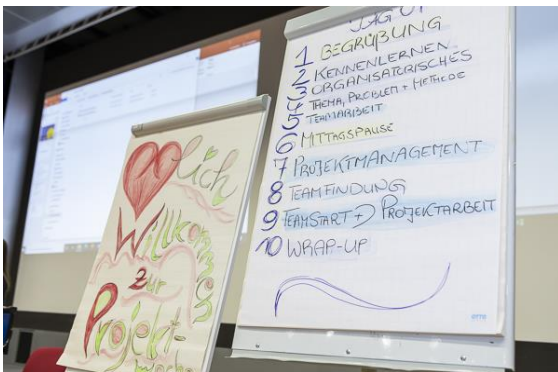 lich
Willkommen
zur
Projekt-
woche
TAG 01
1 BEGRÜßUNG
2 KENNENLERNEN
3 ORGANISATORISCHES
4 THEMA, PROBLEM + METHODE
5 TEAMARBEIT
6 MITTAGSPAUSE
7 PROJEKTMANAGEMENT
8 TEAMFINDUNG
9 TEAMSTART → PROJEKTARBEIT
10 WRAP-UP
OTTO